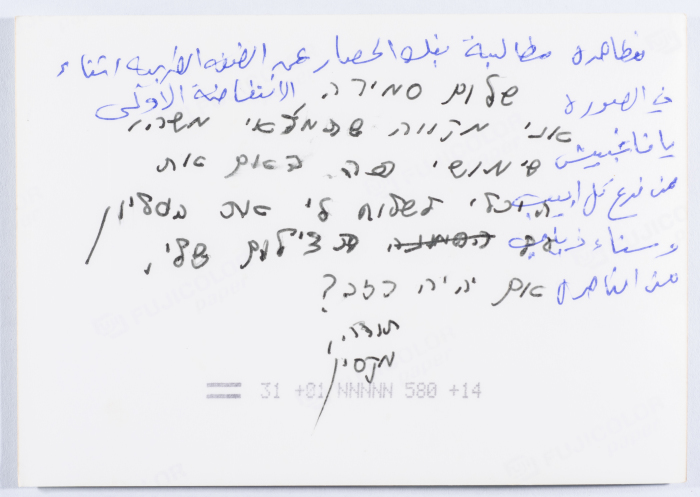 مظاهرة مطالبة بفك الحصار عن الضفة الغربية اثناء
الانتفاضة الأولى
في الصورة
يافا غبيش
من فرع تل ابيب
وسناء
من الناصرة
שלום סמירה,
אני מקווה שתמצאי משהו
שימושי פה. באם את
תוכלי לשלוח לי את
צילום שלי,
אם יהיה כזה?
תודה,
מקסין
31 +01 NNNNN 580 +14